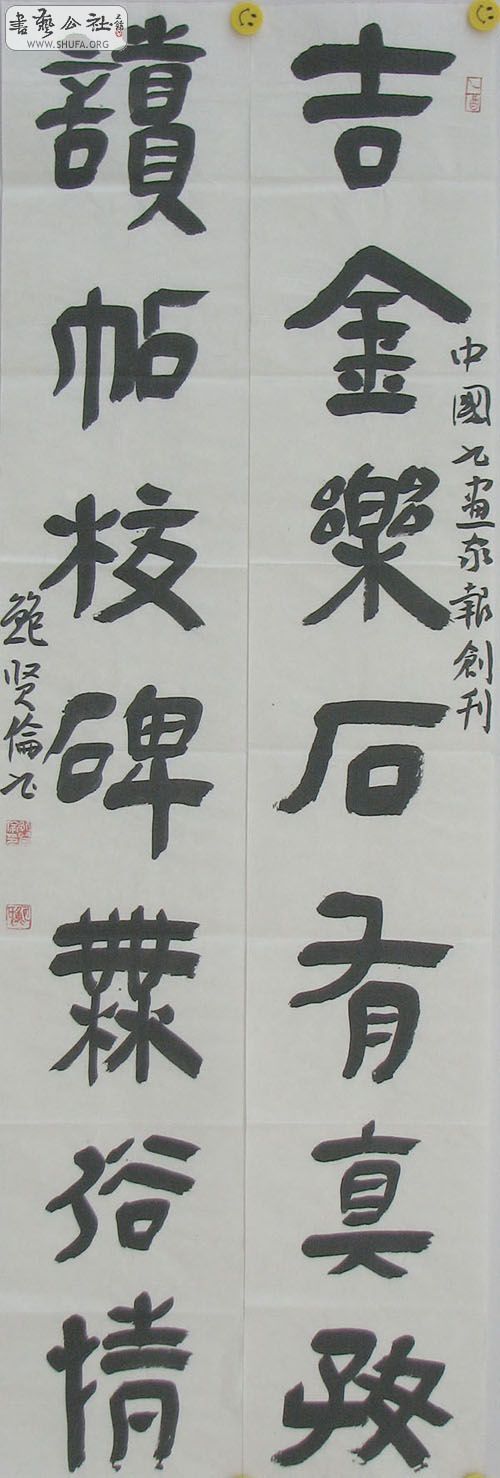 書藝公社
WWW.SHUFA.ORG
吉金樂石有真好
中國书畫家報創刊
讀帖校碑無俗情
鮑贤倫书